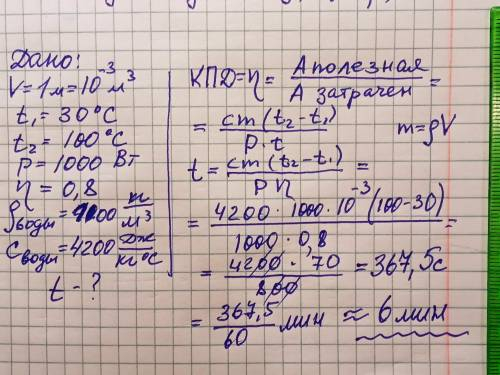 Дано:
V=1м=10⁻³м³
t₁=30°C
t₂=100°C
P=1000 Вт
η=0,8
ρводы=1000 кг/м³
Cводы=4200 Дж/кг°C
t-?
КПД=η= Aполезная/A затрачен =
= cm(t₂-t₁)/P·t    m=ρV
t= cm(t₂-t₁)/Pη =
= 4200·1000·10⁻³(100-30)/1000·0,8 =
= 4200·70/800 =367,5с
= 367,5/60 мин ≈ 6 мин